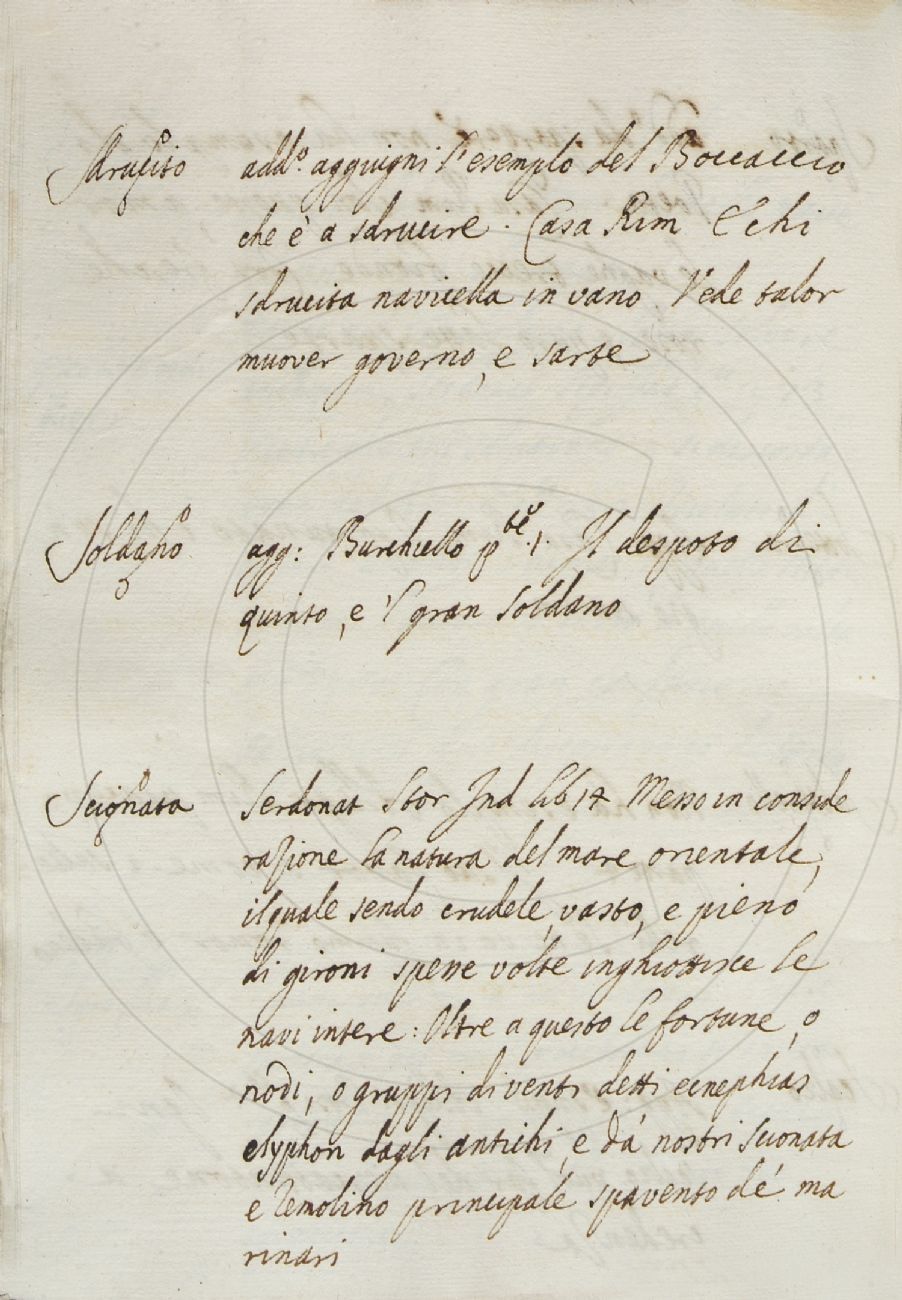 Sdrucito add.º aggiugni l'esemplo del Boccaccio
che è a sdrucire. Casa Rim E chi
sdrucita navicella in vano Vede talor
muover governo, e sarte
Soldano agg: Burchiello 1. Il despoto di
quinto, e 'l gran soldano
Scionata Serdonat Stor Ind lib 14 Messo in conside
razione la natura del mare orientale,
il quale sendo crudele, vasto, e pieno
di gironi spesse volte inghiottisce le
navi intere: Oltre a questo le fortune, o
nodi, o gruppi di venti detti ecnephias
e typhon dagli antichi, e da' nostri scionata
e Remolino principale spavento de' ma
rinari